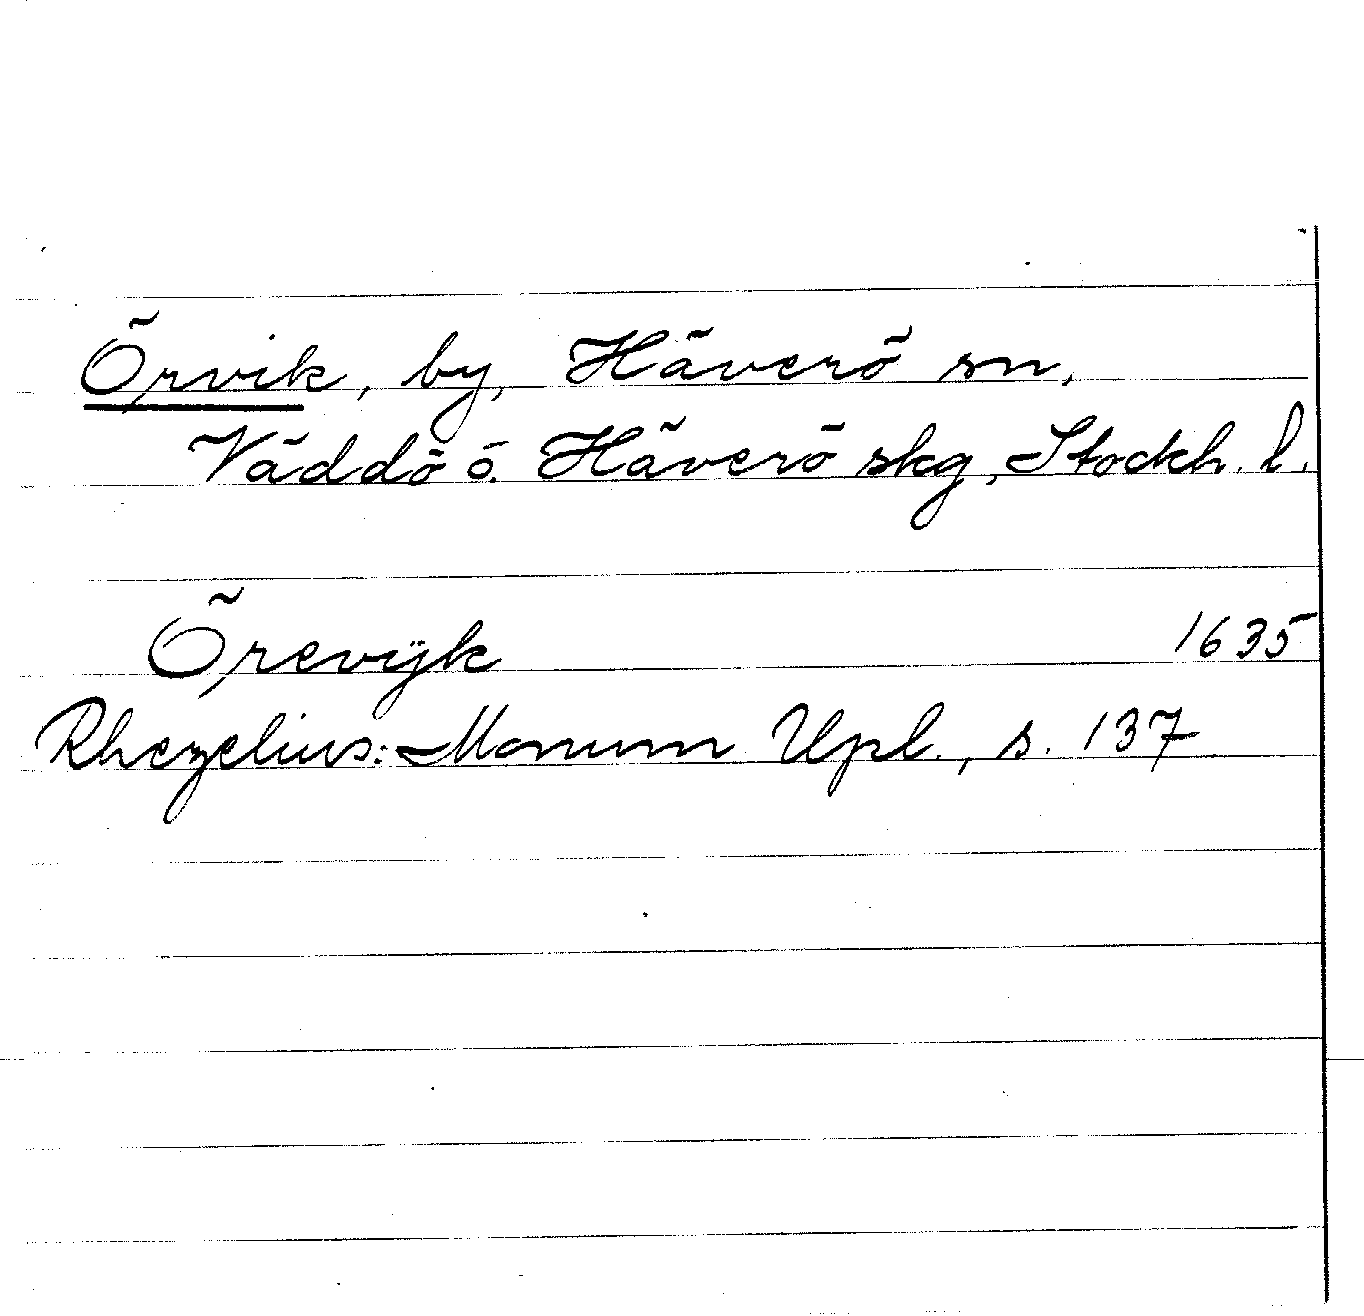 Örvik, by, Häverö sn,
Väddö o. Häverö skg, Stockh. l.
Örevijk 1635
Rhezelius: Monum Upl., s. 137